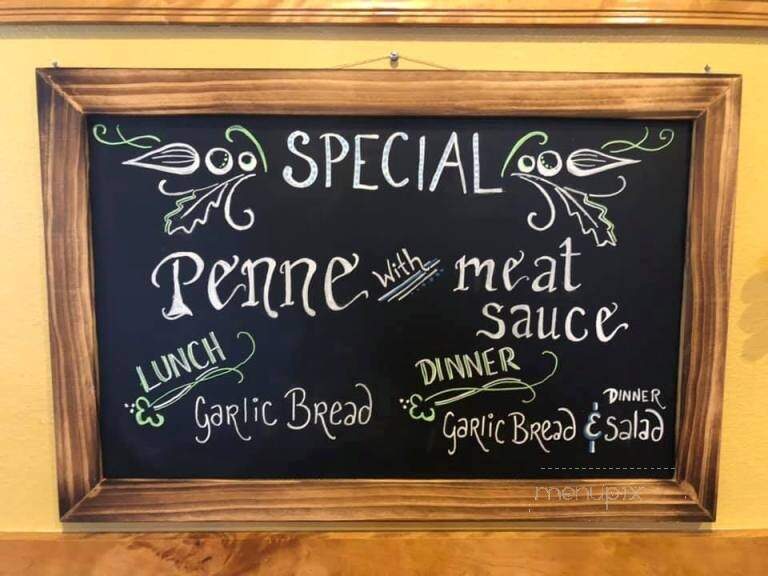 SPECIAL
Penne with meat
sauce
LUNCH
Garlic Bread
DINNER
Garlic Bread & Dinner Salad
menupix